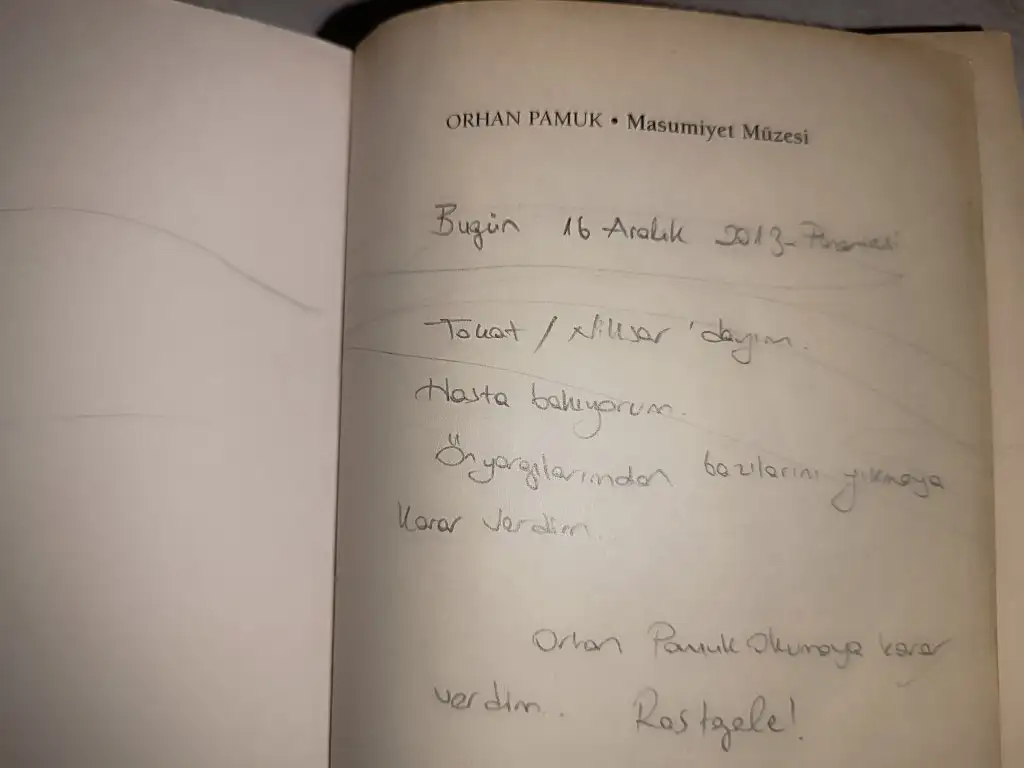 ORHAN PAMUK • Masumiyet Müzesi
Bugün 16 Aralık 2013-
Tokat / Niksar 'dayım.
Hasta bakıyorum.
Önyargılarımdan bazılarını yıkmaya
karar verdim.
Orhan Pamuk okumaya karar
verdim. Rastgele!